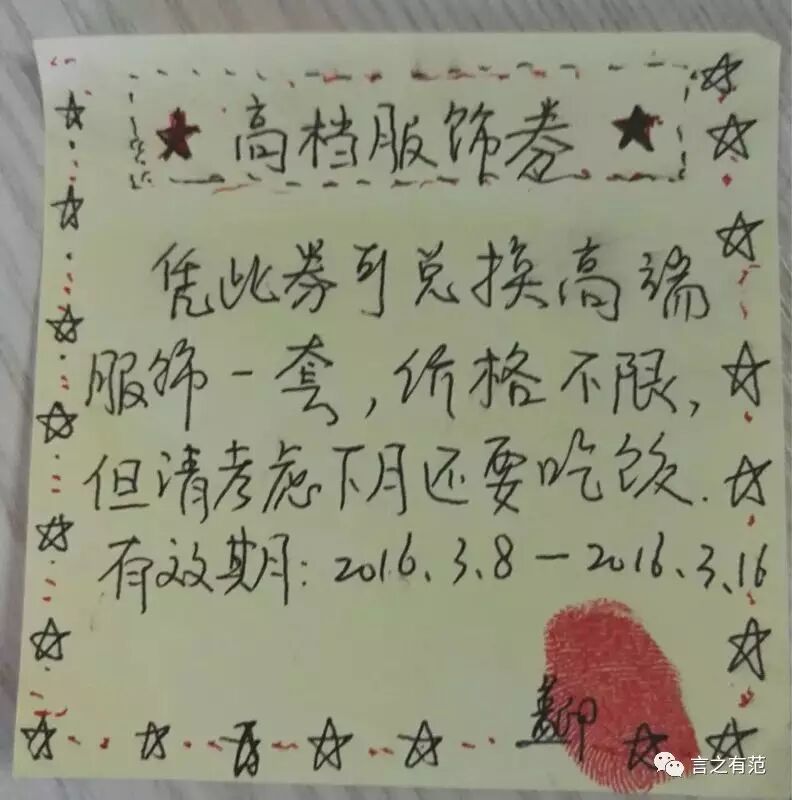 高档服饰券
凭此券可兑换高端
服饰一套，价格不限，
但请考虑下月还要吃饭.
有效期：2016.3.8－2016.3.16
盖印
言之有范